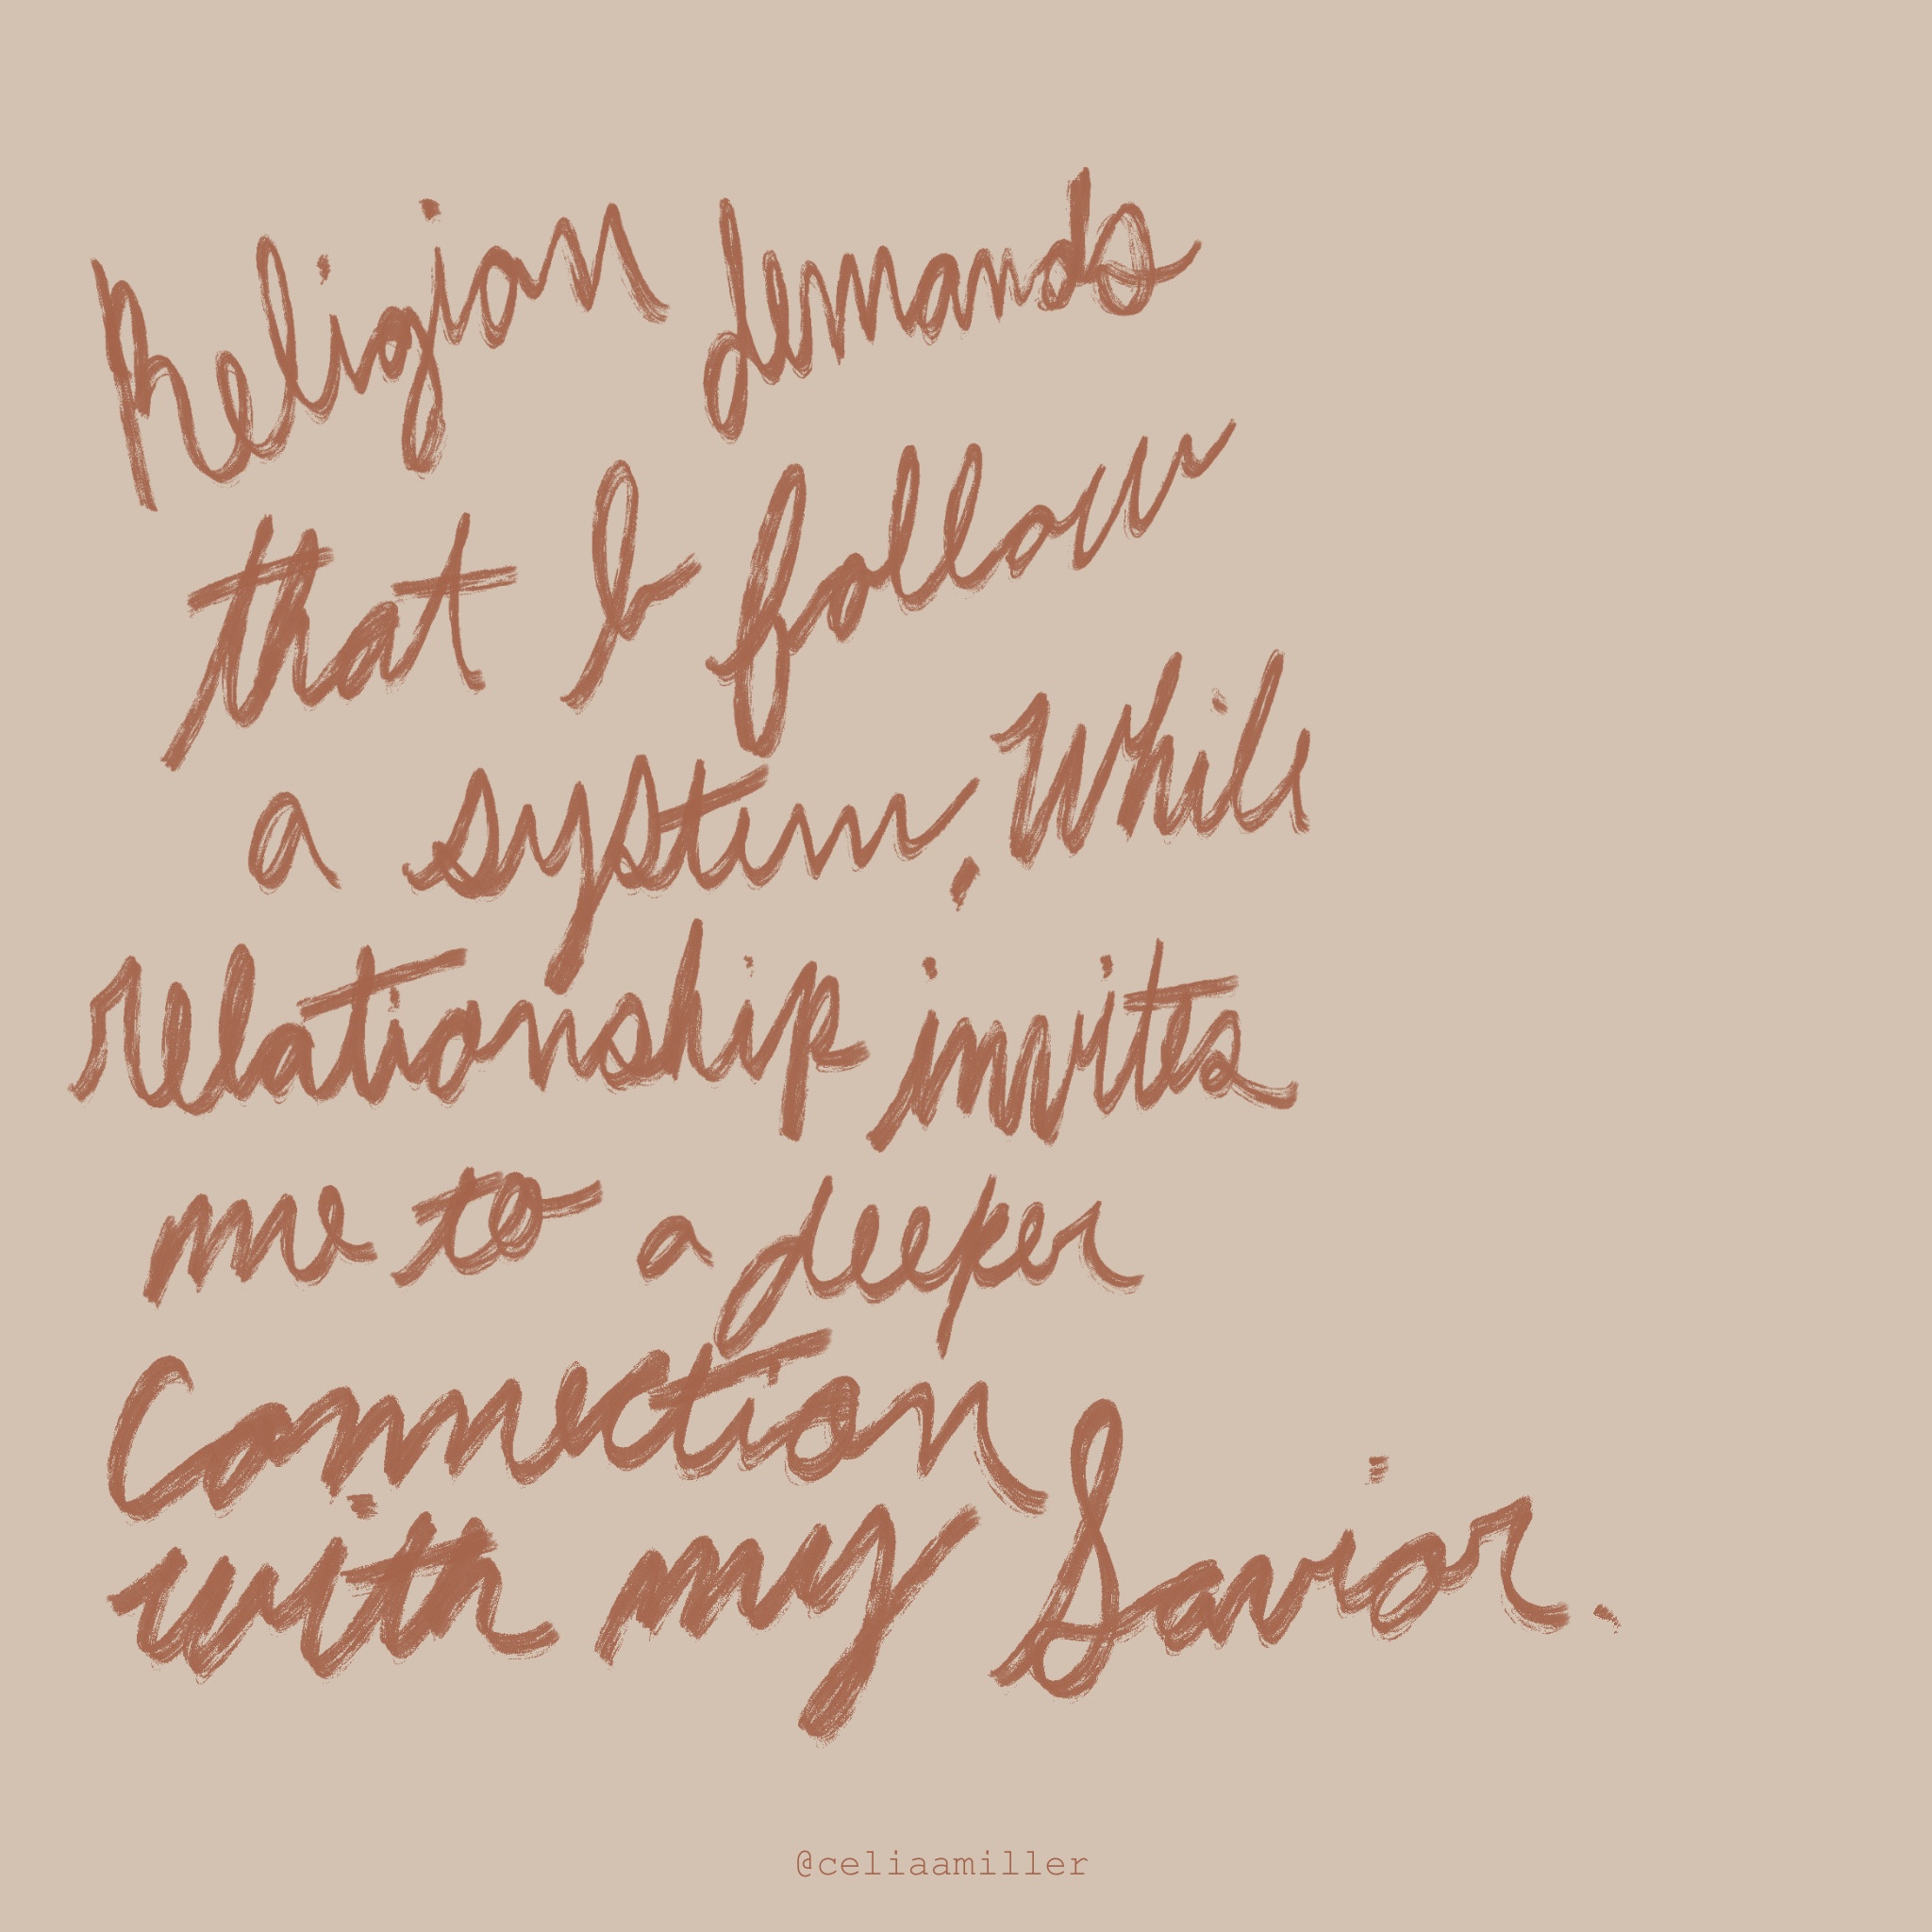 Religion demands
that I follow
a system, While
relationship invites
me to a deeper
Connection
with my Savior.
@celiaamiller